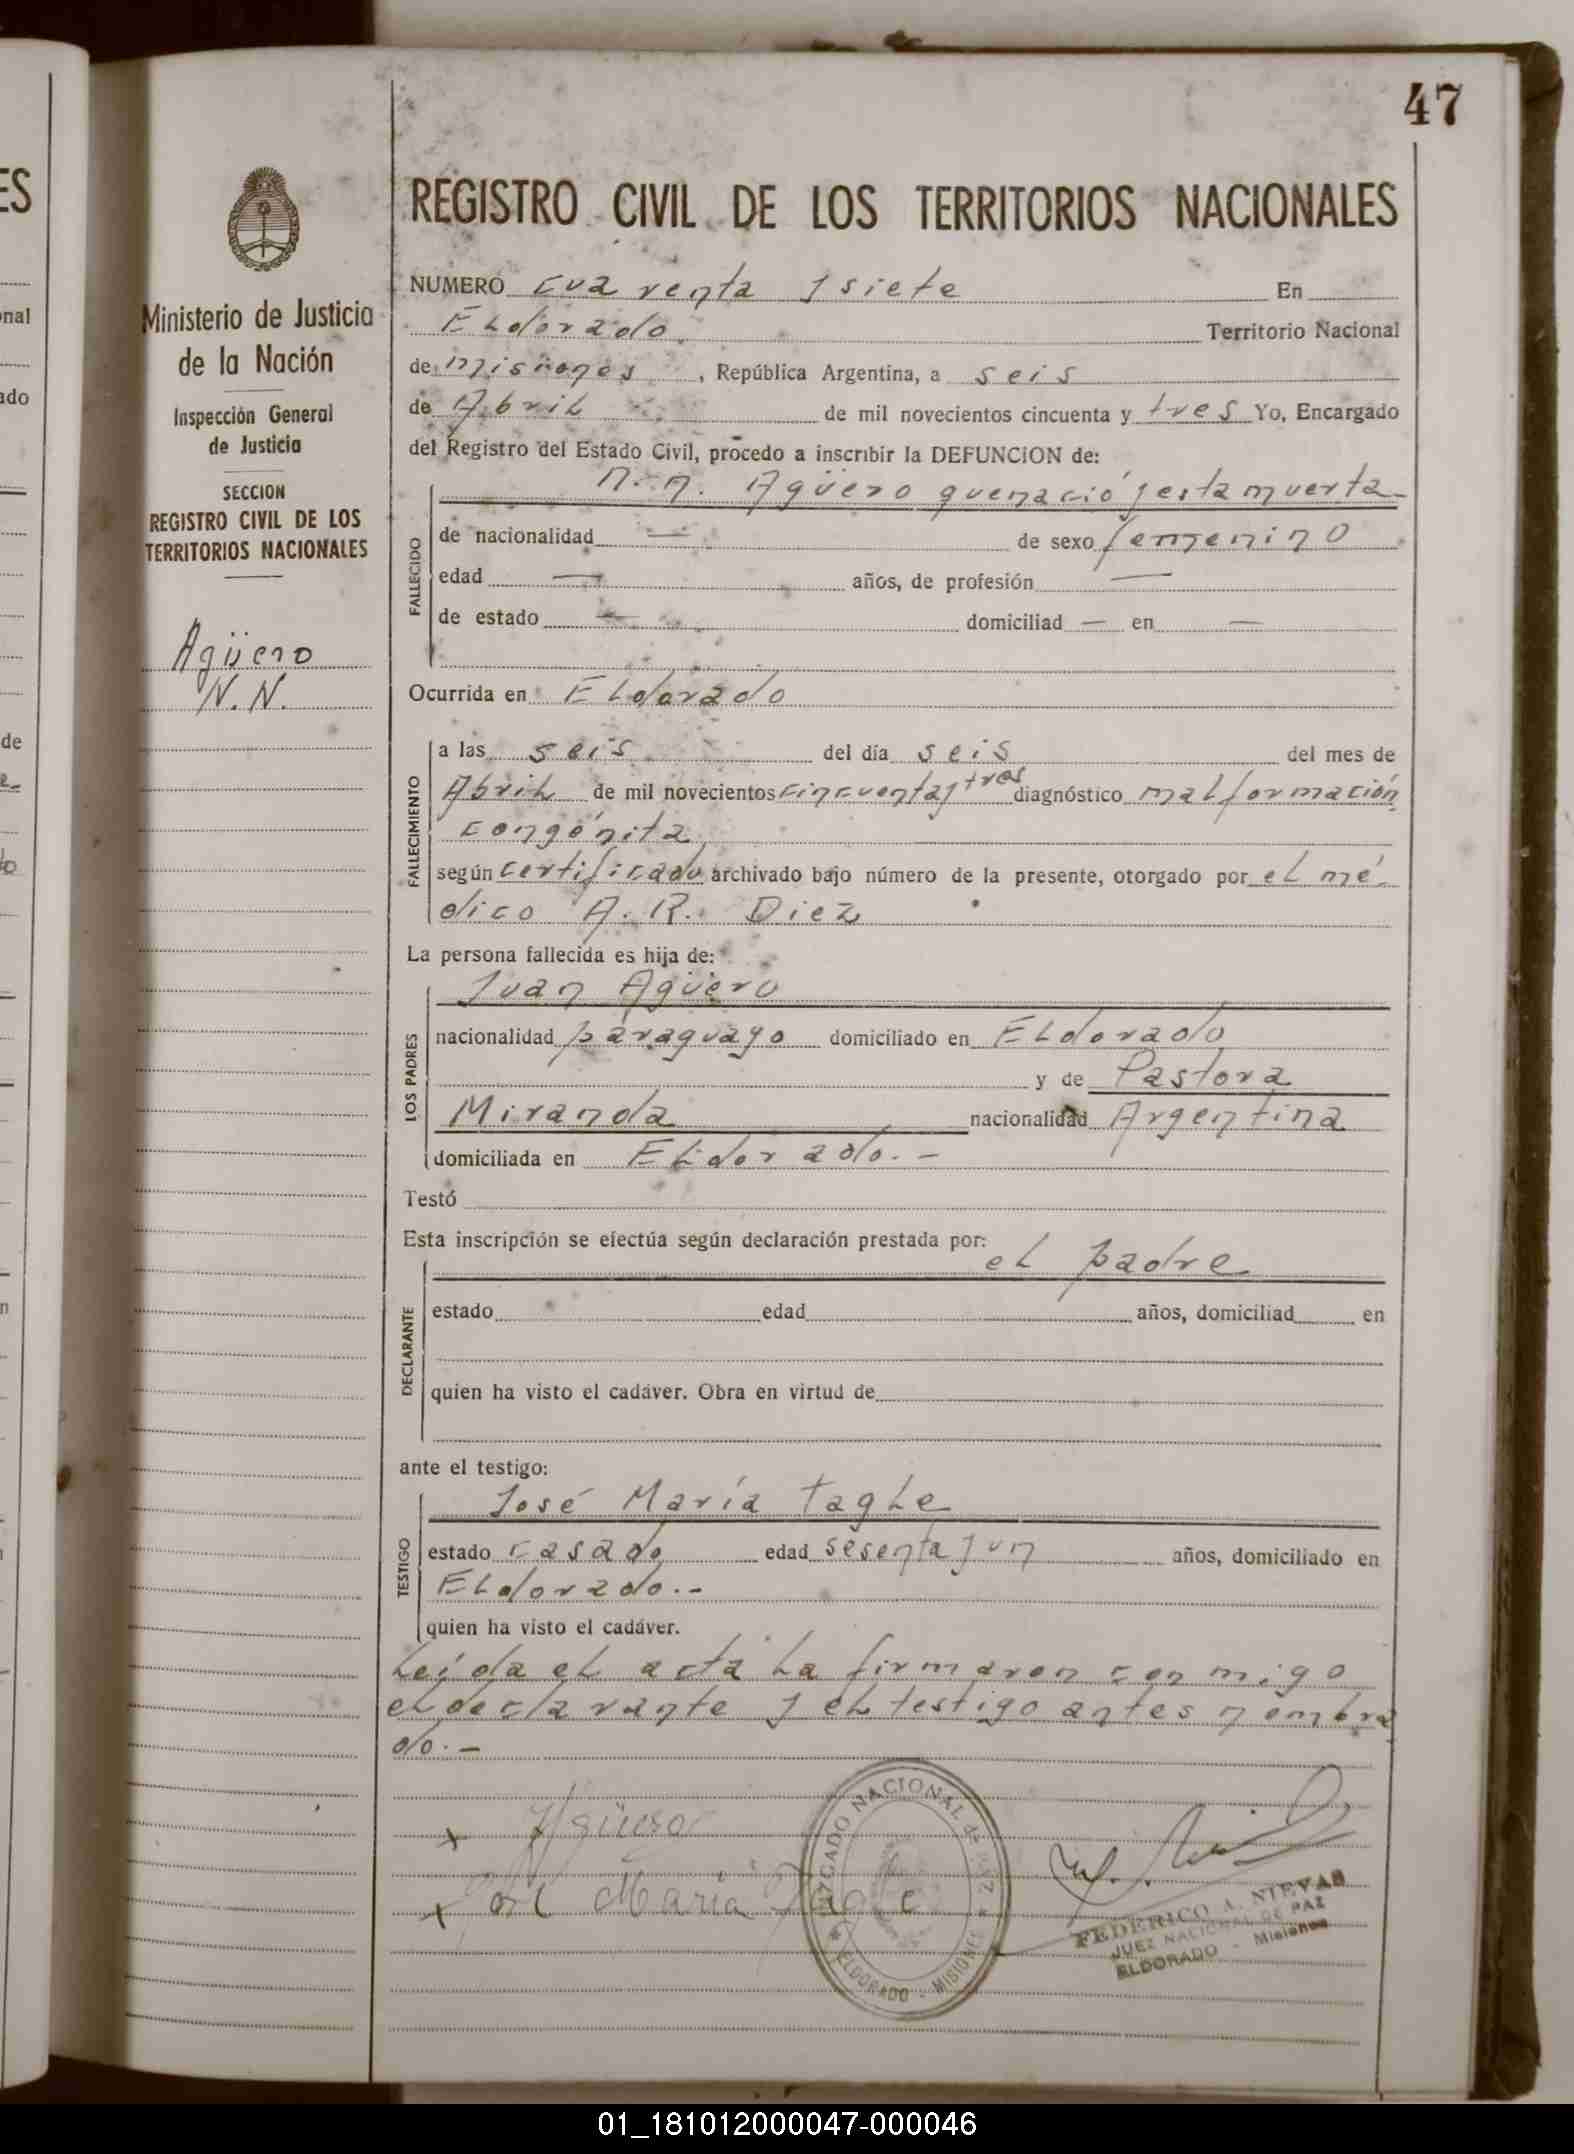 47
REGISTRO CIVIL DE LOS TERRITORIOS NACIONALES
Ministerio de Justicia
de la Nación
Inspección General
de Justicia
SECCION
REGISTRO CIVIL DE LOS
TERRITORIOS NACIONALES
Agüero
N. N.
NUMERO cuarenta y siete En
Eldorado Territorio Nacional
de Misiones, República Argentina, a seis
de Abril de mil novecientos cincuenta y tres Yo, Encargado
del Registro del Estado Civil, procedo a inscribir la DEFUNCION de:
FALLECIDO
N. N. Agüero que nació y esta muerta-
de nacionalidad — de sexo femenino
edad — años, de profesión —
de estado — domiciliad — en —
Ocurrida en Eldorado
FALLECIMIENTO
a las seis del día seis del mes de
Abril de mil novecientos cincuenta y tres diagnóstico malformación
congénita
según certificado archivado bajo número de la presente, otorgado por el mé-
dico A. R. Diez
La persona fallecida es hija de:
LOS PADRES
Juan Agüero
nacionalidad paraguayo domiciliado en Eldorado
y de Pastora
Miranda nacionalidad Argentina
domiciliada en Eldorado.-
Testó
Esta inscripción se efectúa según declaración prestada por:
DECLARANTE
el padre
estado edad años, domiciliad en
quien ha visto el cadáver. Obra en virtud de
ante el testigo:
TESTIGO
José María Tagle
estado casado edad sesenta y un años, domiciliado en
Eldorado.-
quien ha visto el cadáver.
Leída el acta la firmaron con migo
el declarante y el testigo antes nombra
do.-
x Agüero
x José Maria Tagle
JUZGADO NACIONAL DE PAZ
ELDORADO - MISIONES
FEDERICO A. NIEVAS
JUEZ NACIONAL DE PAZ
ELDORADO - Misiones
01_181012000047-000046